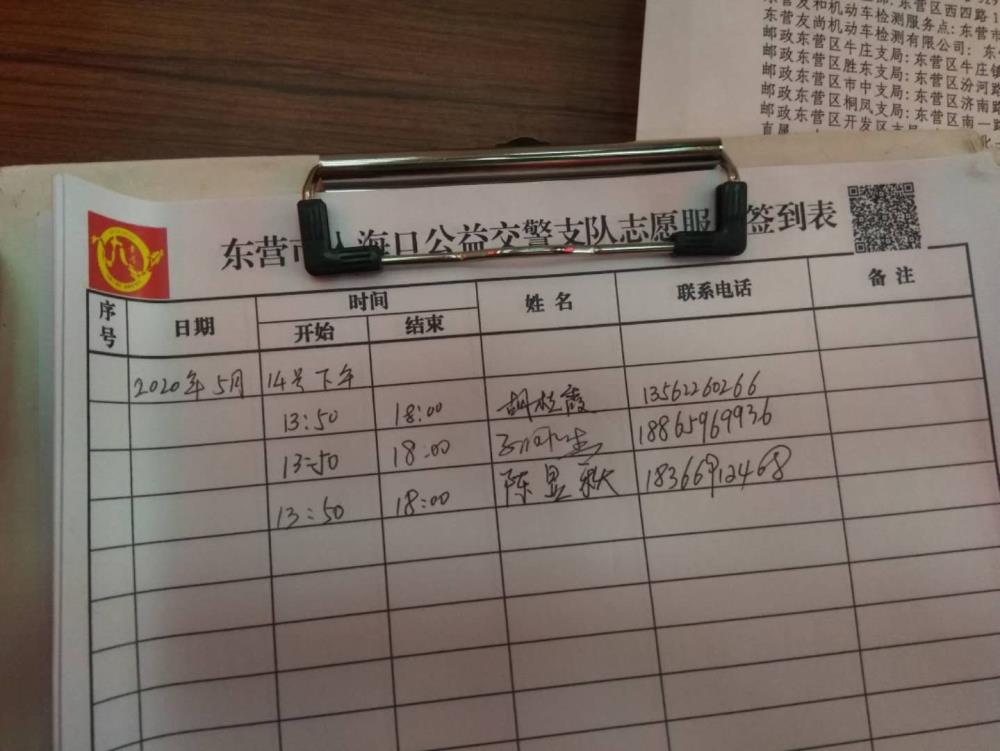 东营区西四路
东营友和机动车检测服务点:东营市
东营友尚机动车检测有限公司:东
邮政东营区牛庄支局:东营区牛庄镇
邮政东营区胜东支局:东营区汾河路
邮政东营区市中支局:东营区济南路
邮政东营区桐凤支局:东营区南一路
邮政东营区开发区支局
东营市 海口公益交警支队志愿服 签到表
序号 日期 时间 姓名 联系电话 备注
开始 结束
2020年5月 14号下午
13:50 18:00 胡枝霞 13562260266
13:50 18:00 18865969936
13:50 18:00 陈显秋 18366912468